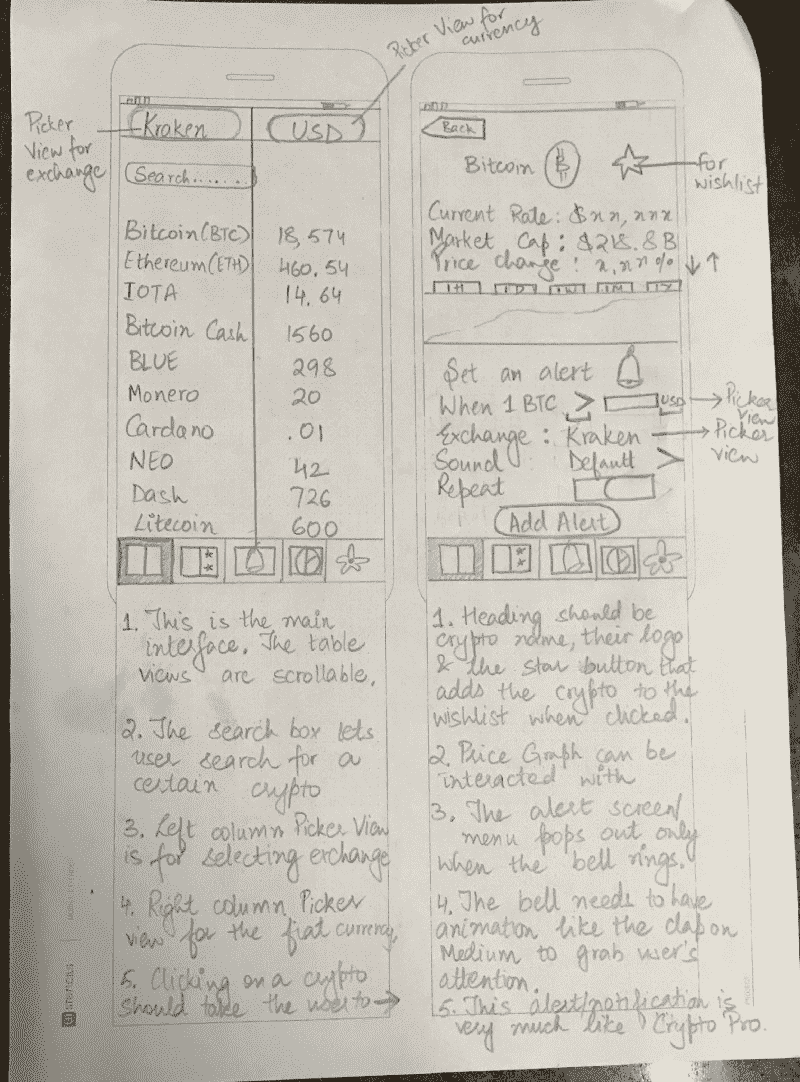 Picker View for
currency
Picker
View for
exchange
Kraken
USD
Search.......
Bitcoin(BTC) 18,574
Ethereum(ETH) 460.54
IOTA 14.64
Bitcoin Cash 1560
BLUE 298
Monero 20
Cardano .01
NEO 42
Dash 726
Litecoin 600
1. This is the main
interface. The table
views are scrollable.
2. The search box lets
user search for a
certain crypto
3. Left column Picker View
is for selecting exchange
4. Right column Picker
view for the fiat currency,
5. Clicking on a crypto
should take the user to →
Back
Bitcoin ₿
for
wishlist
Current Rate: $xx,xxx
Market Cap: $218.8B
Price change: x.xx% ↓↑
1H 1D 1W 1M 1Y
Set an alert
When 1 BTC > USD → Picker
view
Exchange: Kraken → Picker
view
Sound Default >
Repeat
Add Alert
1. Heading should be
crypto name, their logo
& the star button that
adds the crypto to the
wishlist when clicked.
2. Price Graph can be
interacted with
3. The alert screen/
menu pops out only
when the bell rings.
4. The bell needs to have
animation like the clap on
Medium to grab user's
attention.
5. This alert/notification is
very much like Crypto Pro.